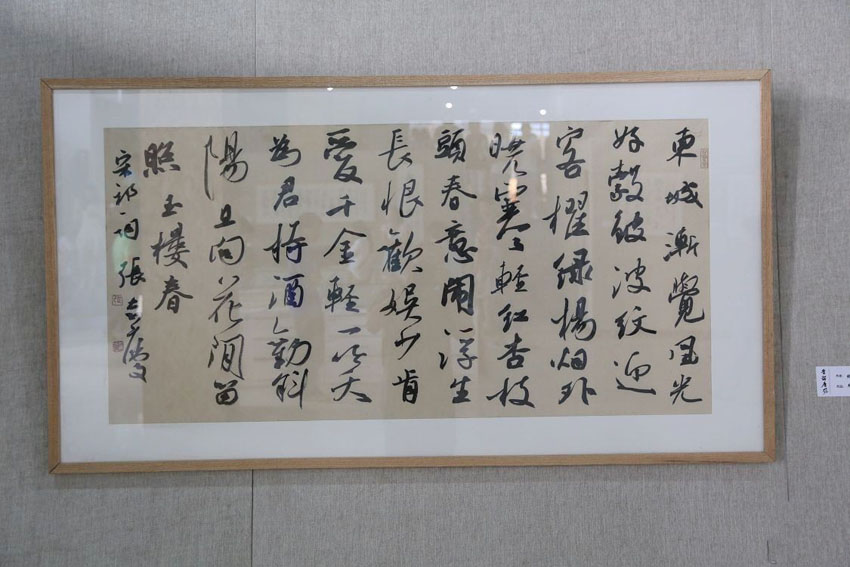 東城漸覺風光
好縠皺波紋迎
客櫂綠楊烟外
曉寒輕紅杏枝
頭春意鬧浮生
長恨歡娛少肯
愛千金輕一笑
為君持酒勸斜
陽且向花間留
照 玉樓春
宋祁詞 張